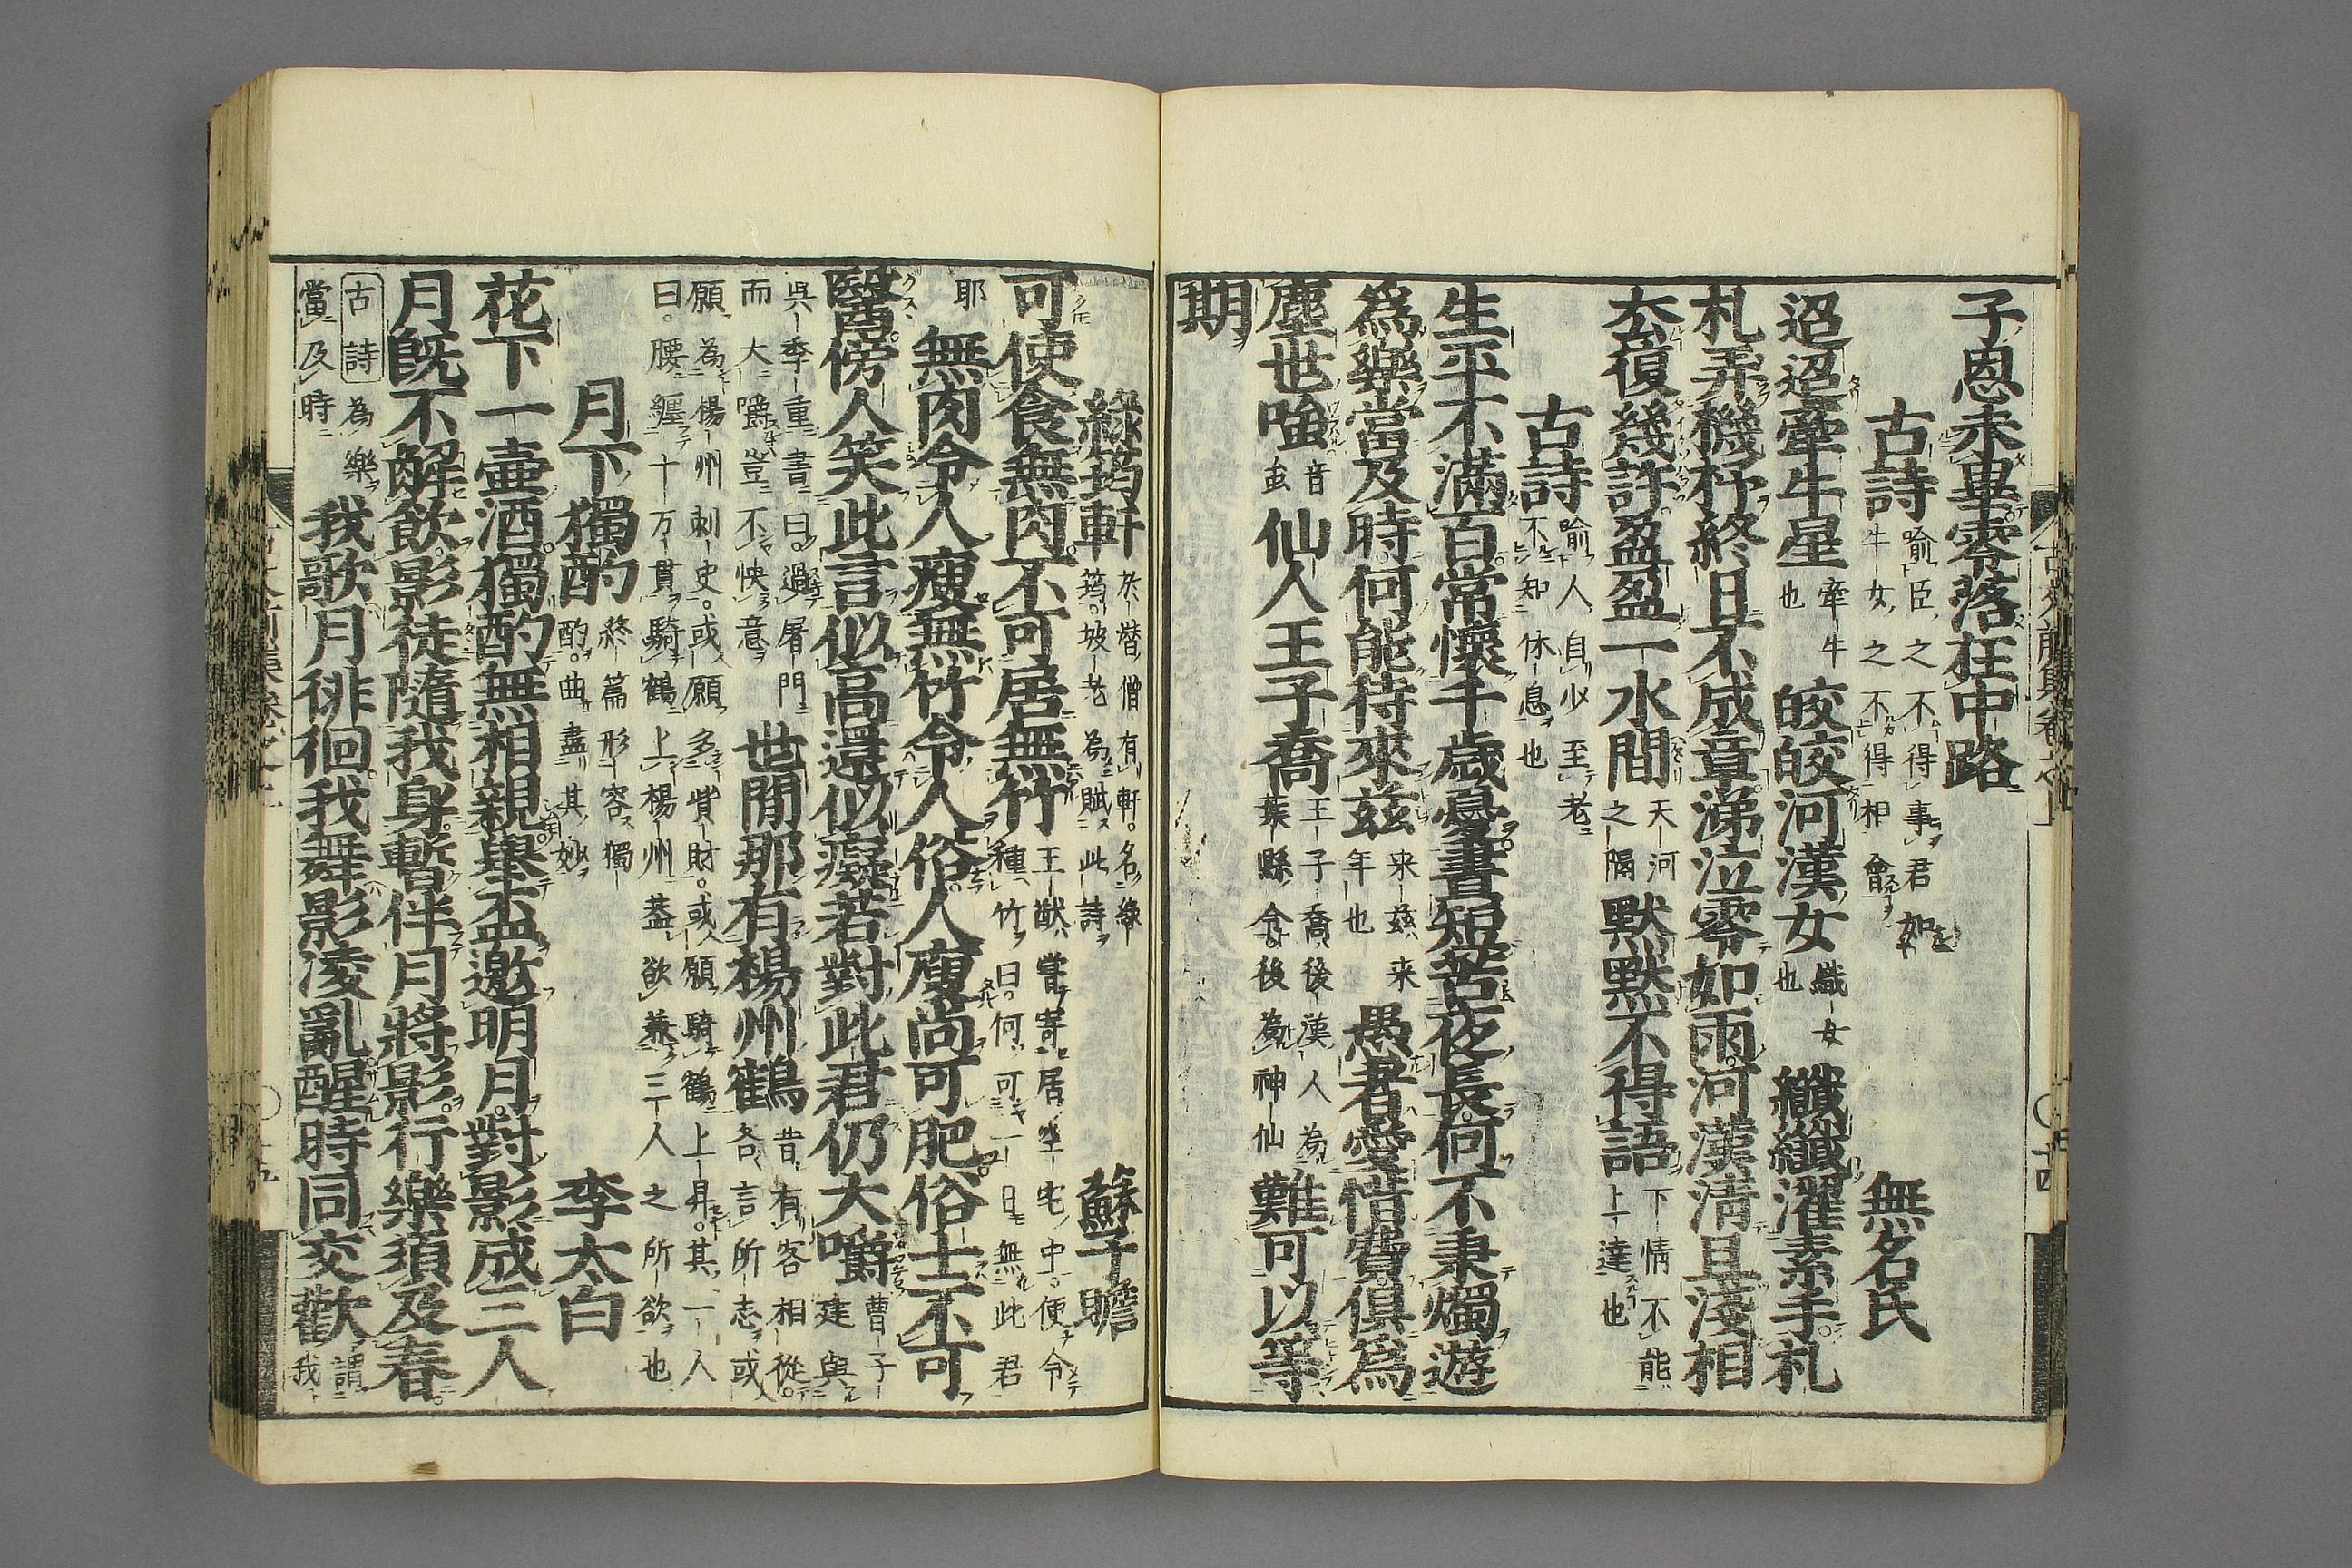 子恩未畢零落在中路
古詩 喻臣之不得事君如
牛女之不得相會 無名氏
迢迢牽牛星 牽牛
也 皎皎河漢女 織女
也 纖纖濯素手札
札弄機杼終日不成章涕泣零如雨河漢清且淺相
去復幾許盈盈一水間 天河
之隔 默默不得語 下情不能
上達也
古詩 喻人自少至老
不知休息也
生平不滿百常懷千歲憂晝短苦夜長何不秉燭遊
為樂當及時何能待來茲 来茲来
年也 愚者愛惜費俱為
塵世嗤 音
蚩 仙人王子喬 王子喬後漢人為
葉縣令後為神仙 難可以等
期
綠筠軒 於潜僧有軒名緑
筠坡老為賦此詩 蘇子瞻
可使食無肉不可居無竹 王猷嘗寄居空宅中便令
種竹曰何可一日無此君
耶 無肉令人瘦無竹令人俗人瘦尚可肥俗士不可
醫傍人笑此言似高還似癡若對此君仍大嚼 曹子
建與
吳季重書曰過屠門
而大嚼豈不快意 世間那有楊州鶴 昔有客相從
各言所志或
願為楊州刺史或願多貲財或願騎鶴上昇其一人
曰腰纏十万貫騎鶴上楊州蓋欲兼三人之所欲也
月下獨酌 終篇形容獨
酌曲盡其妙 李太白
花下一壷酒獨酌無相親舉盃邀明月對影成三人
月既不解飲影徒隨我身暫伴月將影行樂須及春
古詩為樂
當及時 我歌月徘徊我舞影凌亂醒時同交歡 謂
我